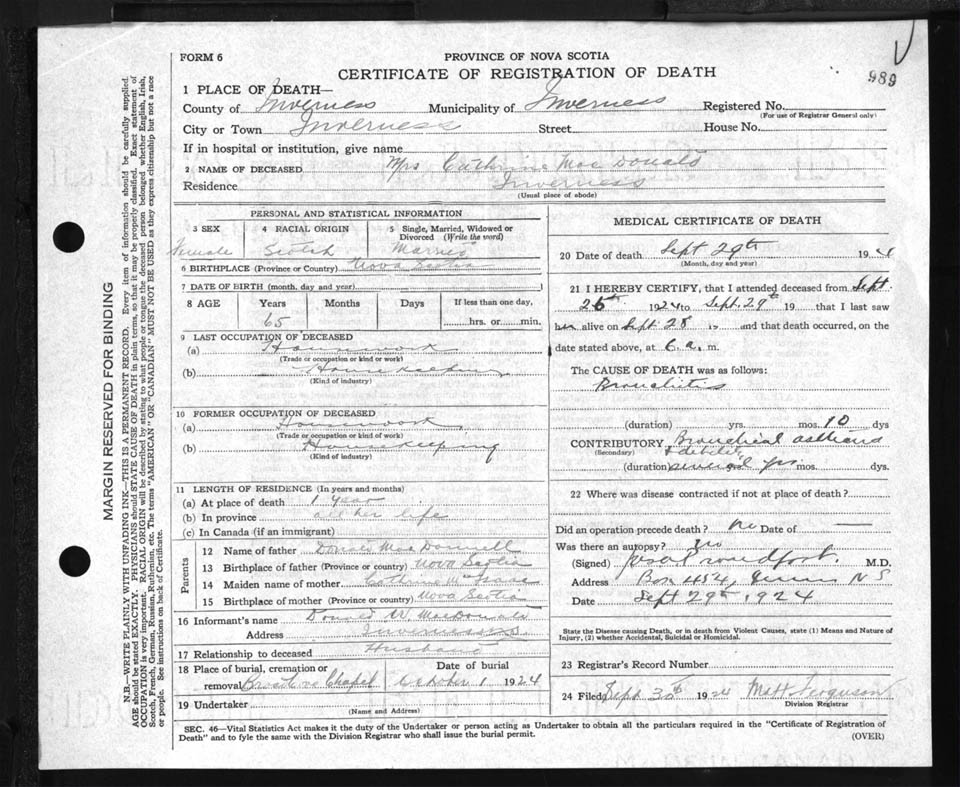 FORM 6
PROVINCE OF NOVA SCOTIA
CERTIFICATE OF REGISTRATION OF DEATH
989
1 PLACE OF DEATH—
County of Inverness Municipality of Inverness Registered No.
(For use of Registrar General only)
City or Town Inverness Street House No.
If in hospital or institution, give name
2 NAME OF DECEASED Mrs Cathrine MacDonald
Residence Inverness
(Usual place of abode)
PERSONAL AND STATISTICAL INFORMATION
3 SEX 4 RACIAL ORIGIN 5 Single, Married, Widowed or Divorced (Write the word)
Female Scotch Married
6 BIRTHPLACE (Province or Country) Nova Scotia
7 DATE OF BIRTH (month, day and year)
8 AGE Years Months Days If less than one day,
65 hrs. or min.
9 LAST OCCUPATION OF DECEASED
(a) Housework
(Trade or occupation or kind or work)
(b) House Keeping
(Kind of industry)
10 FORMER OCCUPATION OF DECEASED
(a) Housework
(Trade or occupation or kind of work)
(b) Housekeeping
(Kind of industry)
11 LENGTH OF RESIDENCE (In years and months)
(a) At place of death 1 year
(b) In province all her life
(c) In Canada (if an immigrant)
Parents
12 Name of father Donald MacDonnell
13 Birthplace of father (Province or country) Nova Scotia
14 Maiden name of mother Cathrine McIsaac
15 Birthplace of mother (Province or country) Nova Scotia
16 Informant's name Donald W. MacDonald
Address Inverness
17 Relationship to deceased Husband
18 Place of burial, cremation or Date of burial
removal Chapel October 1 1924
19 Undertaker
(Name and Address)
MEDICAL CERTIFICATE OF DEATH
20 Date of death Sept 29th 1924
(Month, day and year)
21 I HEREBY CERTIFY, that I attended deceased from Sept.
26th 1924 to Sept. 29th 19 that I last saw
her alive on Sept 28 19 and that death occurred, on the
date stated above, at 6 a. m.
The CAUSE OF DEATH was as follows:
Bronchitis
(duration) yrs. mos. 10 dys
CONTRIBUTORY Bronchial asthma
(Secondary) & debility
(duration) several yrs mos. dys.
22 Where was disease contracted if not at place of death?
Did an operation precede death? no Date of —
Was there an autopsy? no
(Signed) M.D.
Address Box 454, N S
Date Sept 29th, 1924
State the Disease causing Death, or in death from Violent Causes, state (1) Means and Nature of
Injury, (2) whether Accidental, Suicidal or Homicidal.
23 Registrar's Record Number
24 Filed Sept 30th 1924 Matt Ferguson
Division Registrar
SEC. 46—Vital Statistics Act makes it duty of the Undertaker or person acting as Undertaker to obtain all the particulars required in the "Certificate of Registration of
Death" and to fyle the same with the Division Registrar who shall issue the burial permit.
(OVER)
MARGIN RESERVED FOR BINDING
N.B.—WRITE PLAINLY WITH UNFADING INK—THIS IS A PERMANENT RECORD. Every item of information should be carefully supplied.
AGE should be stated EXACTLY. PHYSICIANS should STATE CAUSE OF DEATH in plain terms, so that it may be properly classified. Exact statement of
OCCUPATION is very important. RACIAL ORIGIN will be described by stating to what people or tongue the deceased person belonged whether English, Irish,
Scotch, French, German, Russian, Ruthenian, etc. The terms "AMERICAN" OR "CANADIAN" MUST NOT BE USED as they express citizenship but not a race
or people. See instructions on back of Certificate.